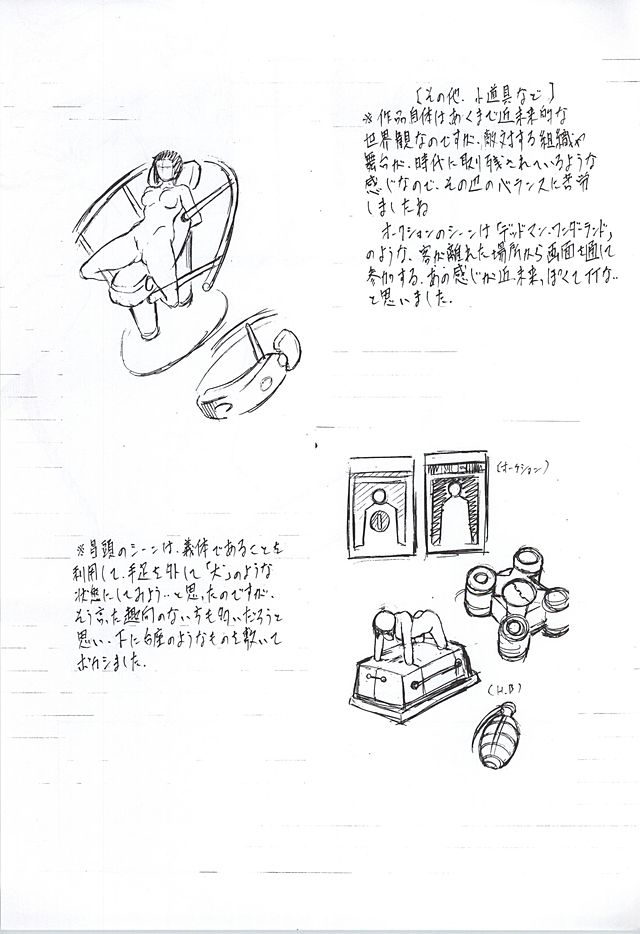 [その他、小道具など]
※作品自体はあくまで近未来的な
世界観なのですが、敵対する組織や
舞台が、時代に取り残されているような
感じなので、その辺のバランスに苦労
しましたね
オークションのシーンは「デッドマン・ワンダーランド」
のような、客が離れた場所から画面を通して
参加する、あの感じが近未来っぽくて
と思いました.
(オークション)
※冒頭のシーンは、義体であることを
利用して、手足を外して「犬」のような
状態にしてみよう…と思ったのですが、
そう言った趣向のない方も多いだろうと
思い、下に台座のようなものを敷いて
ボカシました.
(H.B)